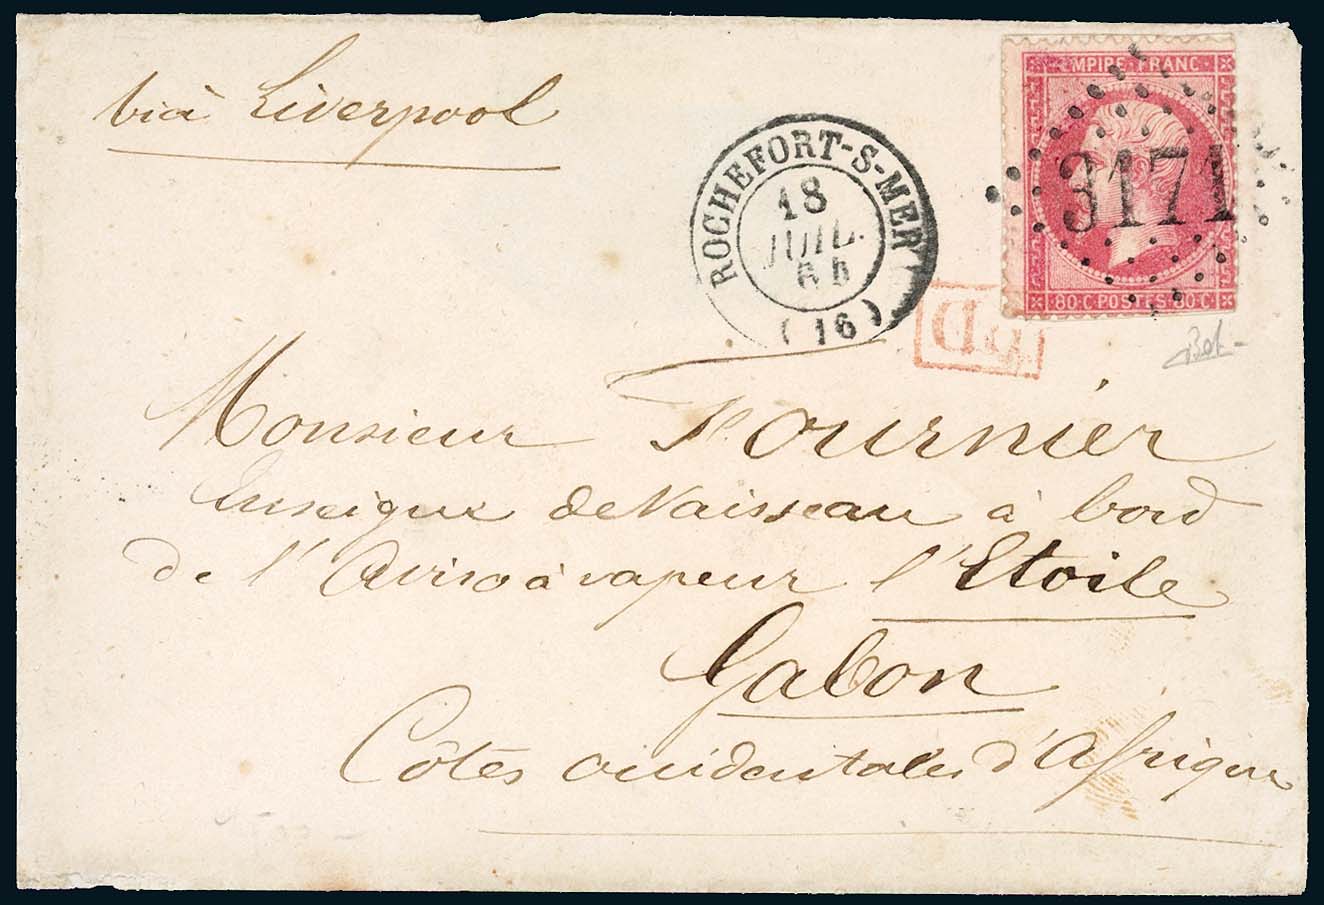 via Liverpool
ROCHEFORT-S-MER
18
JUIL.
65
(16)
MPIRE FRANC
3171
80·C POSTES 80·C
PD
Monsieur Fournier
Enseigne de Vaisseau à bord
de l'Aviso à vapeur l'Etoile
Gabon
Côtes occidentales d'Afrique